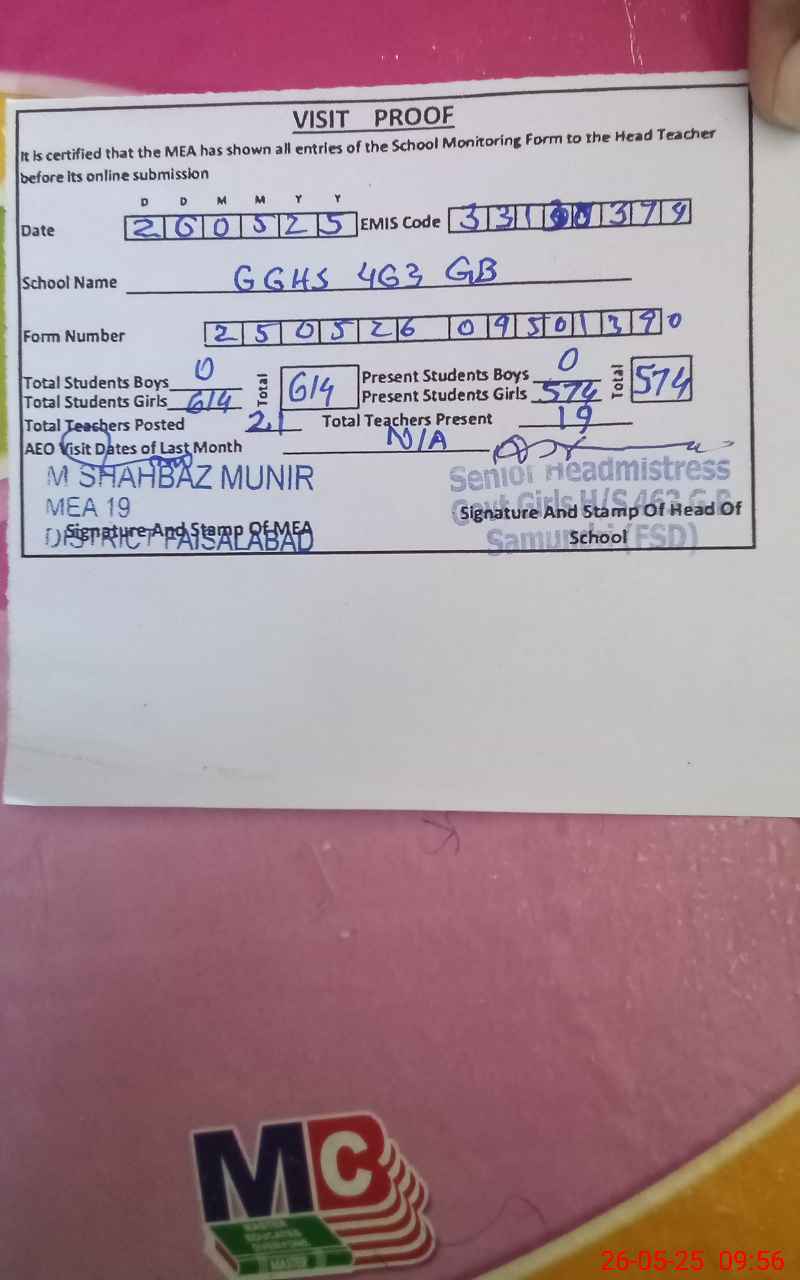 VISIT PROOF
It is certified that the MEA has shown all entries of the School Monitoring Form to the Head Teacher
before its online submission
D D M M Y Y
Date 260525 EMIS Code 33100379
School Name GGHS 463 GB
Form Number 250526 09501390
Total Students Boys 0 Total 614 Present Students Boys 0 Total 574
Total Students Girls 614 Present Students Girls 574
Total Teachers Posted 21 Total Teachers Present 19
AEO Visit Dates of Last Month N/A
M SHAHBAZ MUNIR
MEA 19
DISTRICT FAISALABAD
Signature And Stamp Of MEA
Senior Headmistress
Govt Girls H/S 463 G.B
Samundri (FSD)
Signature And Stamp Of Head Of
School
MC
MASTER
26-05-25 09:56